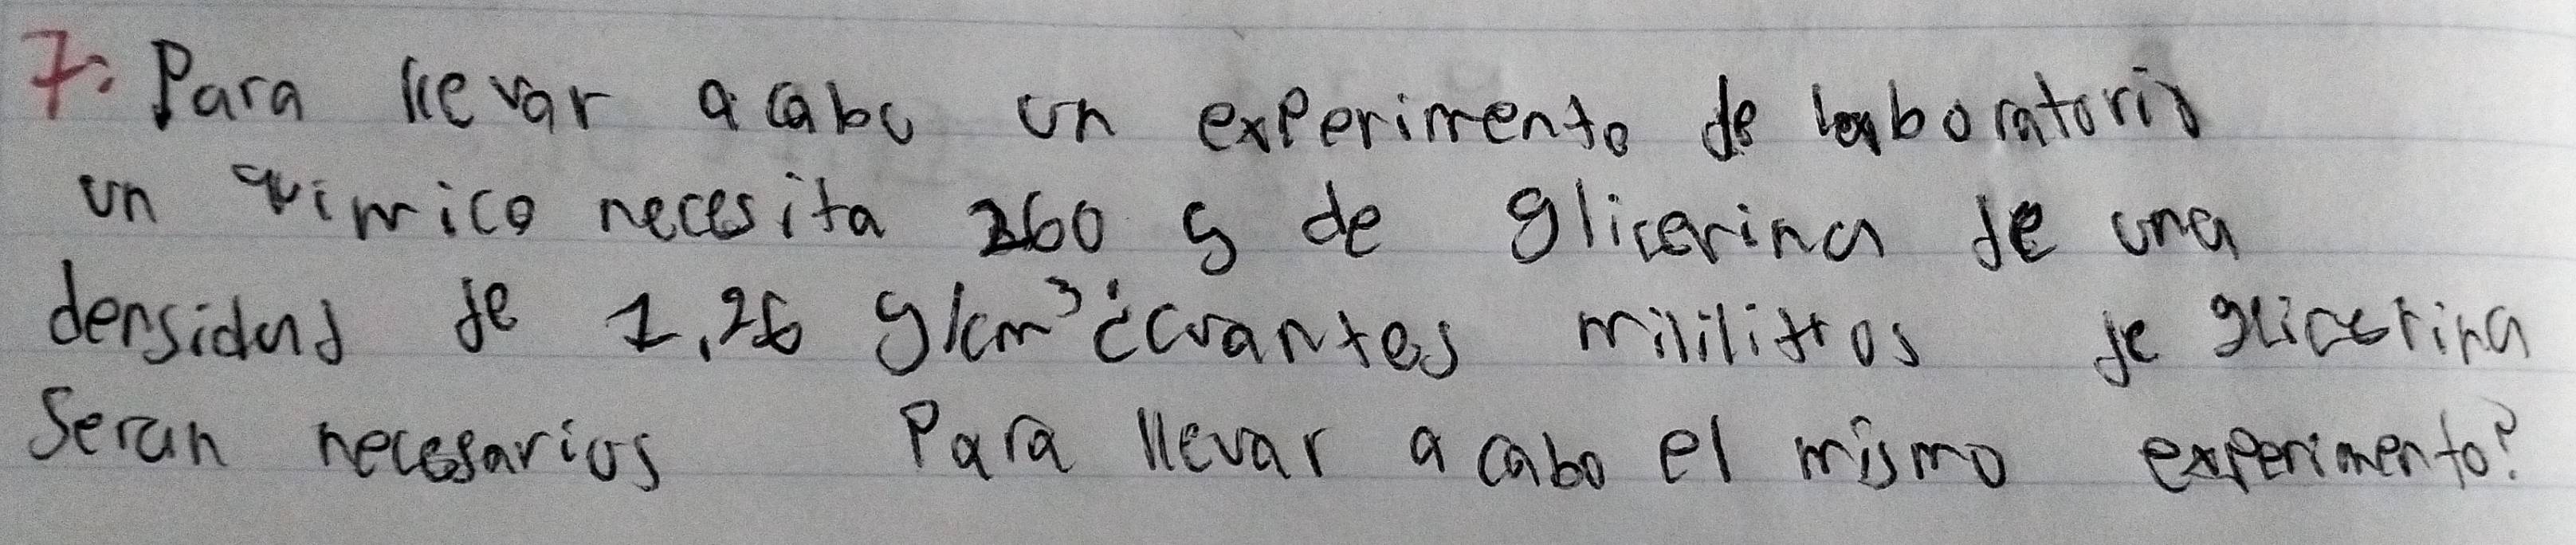 7: Para llevar acabo un experimento de laboratorio
un quimico necesita 260 g de glicerina de una
densidad de 1,26 g/cm³ ¿cuantos mililitros de glicerina
Seran necesarios Para llevar acabo el mismo experimento?